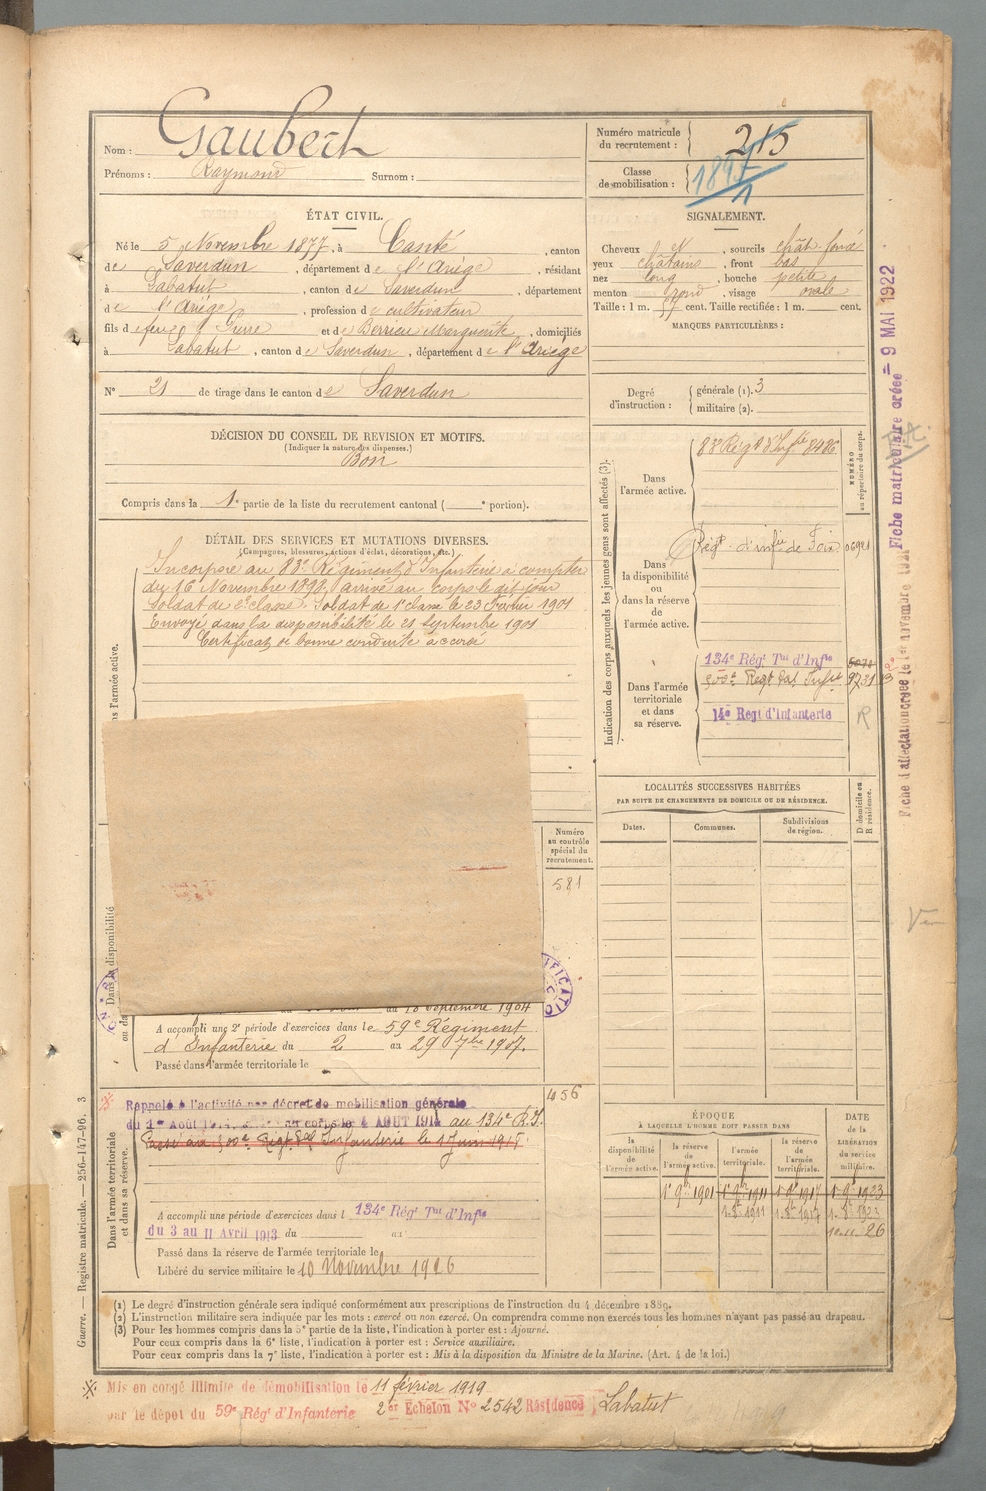 Nom : Gaubert
Prénoms : Raymond Surnom :
Numéro matricule du recrutement : 215
Classe de mobilisation : 1897
ÉTAT CIVIL.
Né le 5 Novembre 1877, à Canté, canton
de Saverdun, département de l'Ariège, résidant
à Labatut, canton de Saverdun, département
de l'Ariège, profession de cultivateur
fils de feu Pierre et de Berrieu Marguerite, domiciliés
à Labatut, canton de Saverdun, département de l'Ariège
N° 21 de tirage dans le canton de Saverdun
SIGNALEMENT.
Cheveux et, sourcils chât. foncé
yeux châtains, front bas
nez long, bouche petite
menton rond, visage ovale
Taille : 1 m. 57 cent. Taille rectifiée : 1 m. cent.
MARQUES PARTICULIÈRES :
Degré d'instruction : générale (1). 3
militaire (2).
DÉCISION DU CONSEIL DE REVISION ET MOTIFS.
(Indiquer la nature des dispenses.)
Bon
Compris dans la 1e partie de la liste du recrutement cantonal ( e portion).
DÉTAIL DES SERVICES ET MUTATIONS DIVERSES.
(Campagnes, blessures, actions d'éclat, décorations, etc.)
Incorporé au 83e Régiment d'Infanterie à compter
du 16 Novembre 1898, arrivé au corps le dit jour
Soldat de 2e classe. Soldat de 1e classe le 23 Février 1901
Envoyé dans la disponibilité le 21 Septembre 1901
Certificat de bonne conduite accordé
Indication des corps auxquels les jeunes gens sont affectés (3).
NUMÉRO au répertoire du corps.
Dans l'armée active.
83e Régt d'Infie 8486
Dans la disponibilité ou dans la réserve de l'armée active.
Régt d'infie de Foix 06921
Dans l'armée territoriale et dans sa réserve.
134e Régt Tal d'Infie
500e Régt Tal Infie 9731
14e Régt d'Infanterie
R
LOCALITÉS SUCCESSIVES HABITÉES
PAR SUITE DE CHANGEMENTS DE DOMICILE OU DE RÉSIDENCE.
Dates. Communes. Subdivisions de région. D domicile ou R résidence.
Numéro au contrôle spécial du recrutement.
581
Dans l'armée active.
Dans la disponibilité
au 18 Septembre 1904
A accompli une 2e période d'exercices dans le 59e Régiment
d'Infanterie du 2 au 29 7bre 1907.
Passé dans l'armée territoriale le
456
Dans l'armée territoriale et dans sa réserve.
Rappelé à l'activité par décret de mobilisation générale
du 1er Août 1914, au corps le 4 AOUT 1914 au 134e R.I.
Passé au 500e Régt Tal Infanterie le 1 Juin 1915.
A accompli une période d'exercices dans l 134e Régt Tal d'Infie
du 3 au 11 Avril 1913 du au
Passé dans la réserve de l'armée territoriale le
Libéré du service militaire le 10 Novembre 1926
ÉPOQUE
À LAQUELLE L'HOMME DOIT PASSER DANS
la disponibilité de l'armée active. la réserve de l'armée active. l'armée territoriale. la réserve de l'armée territoriale.
DATE de la LIBÉRATION du service militaire.
1e 9bre 1901 1e 9bre 1911 1e 9bre 1917 1e 9bre 1923
1-8-1911 1-8-1917 1-8-1923
10-11-26
(1) Le degré d'instruction générale sera indiqué conformément aux prescriptions de l'instruction du 4 décembre 1889.
(2) L'instruction militaire sera indiquée par les mots : exercé ou non exercé. On comprendra comme non exercés tous les hommes n'ayant pas passé au drapeau.
(3) Pour les hommes compris dans la 5e partie de la liste, l'indication à porter est : Ajourné.
Pour ceux compris dans la 6e liste, l'indication à porter est : Service auxiliaire.
Pour ceux compris dans la 7e liste, l'indication à porter est : Mis à la disposition du Ministre de la Marine. (Art. 4 de la loi.)
Mis en congé illimité de démobilisation le 11 février 1919
par le dépot du 59e Régt d'Infanterie 2e Echelon N° 2542 Résidence Labatut
Guerre. — Registre matricule. — 256-147-96. 3
Fiche matriculaire créée = 9 MAI 1922
Fiche d'affectation créée le 1er novembre